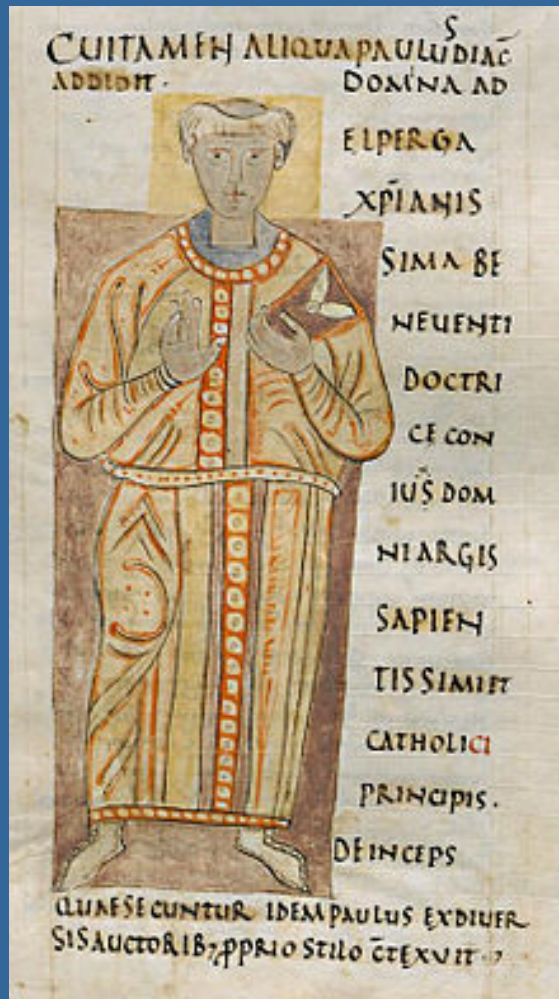 CUITAMEN ALIQUA PAULUS DIAC̄
ADDIDIT · DOMNA AD
ELPERGA
XP̄IANIS
SIMA BE
NEUENTI
DOCTRI
CE CON
IUS̄ DOM
NI ARGIS
SAPIEN
TISSIMI ET
CATHOLICI
PRINCIPIS .
DEINCEPS
QUAE SECUNTUR IDEM PAULUS EX DIUER
SIS AUCTORIB; PROPRIO STILO C̄TEXUIT